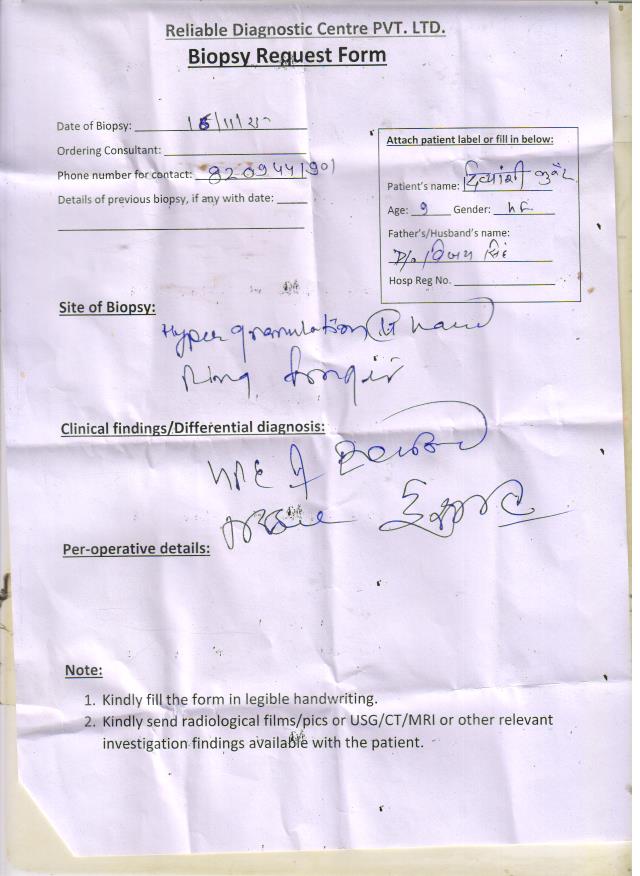 Reliable Diagnostic Centre PVT. LTD.
Biopsy Request Form
Date of Biopsy:
Ordering Consultant:
Phone number for contact: 8209441901
Details of previous biopsy, if any with date:
Attach patient label or fill in below:
Patient's name:
Age: 9 Gender:
Father's/Husband's name:
D/o विजय सिंह
Hosp Reg No.
Site of Biopsy:
Hyper granulation Lt hand
Ring finger
Clinical findings/Differential diagnosis:
HPE of excised
Per-operative details:
Note:
1. Kindly fill the form in legible handwriting.
2. Kindly send radiological films/pics or USG/CT/MRI or other relevant
investigation findings available with the patient.